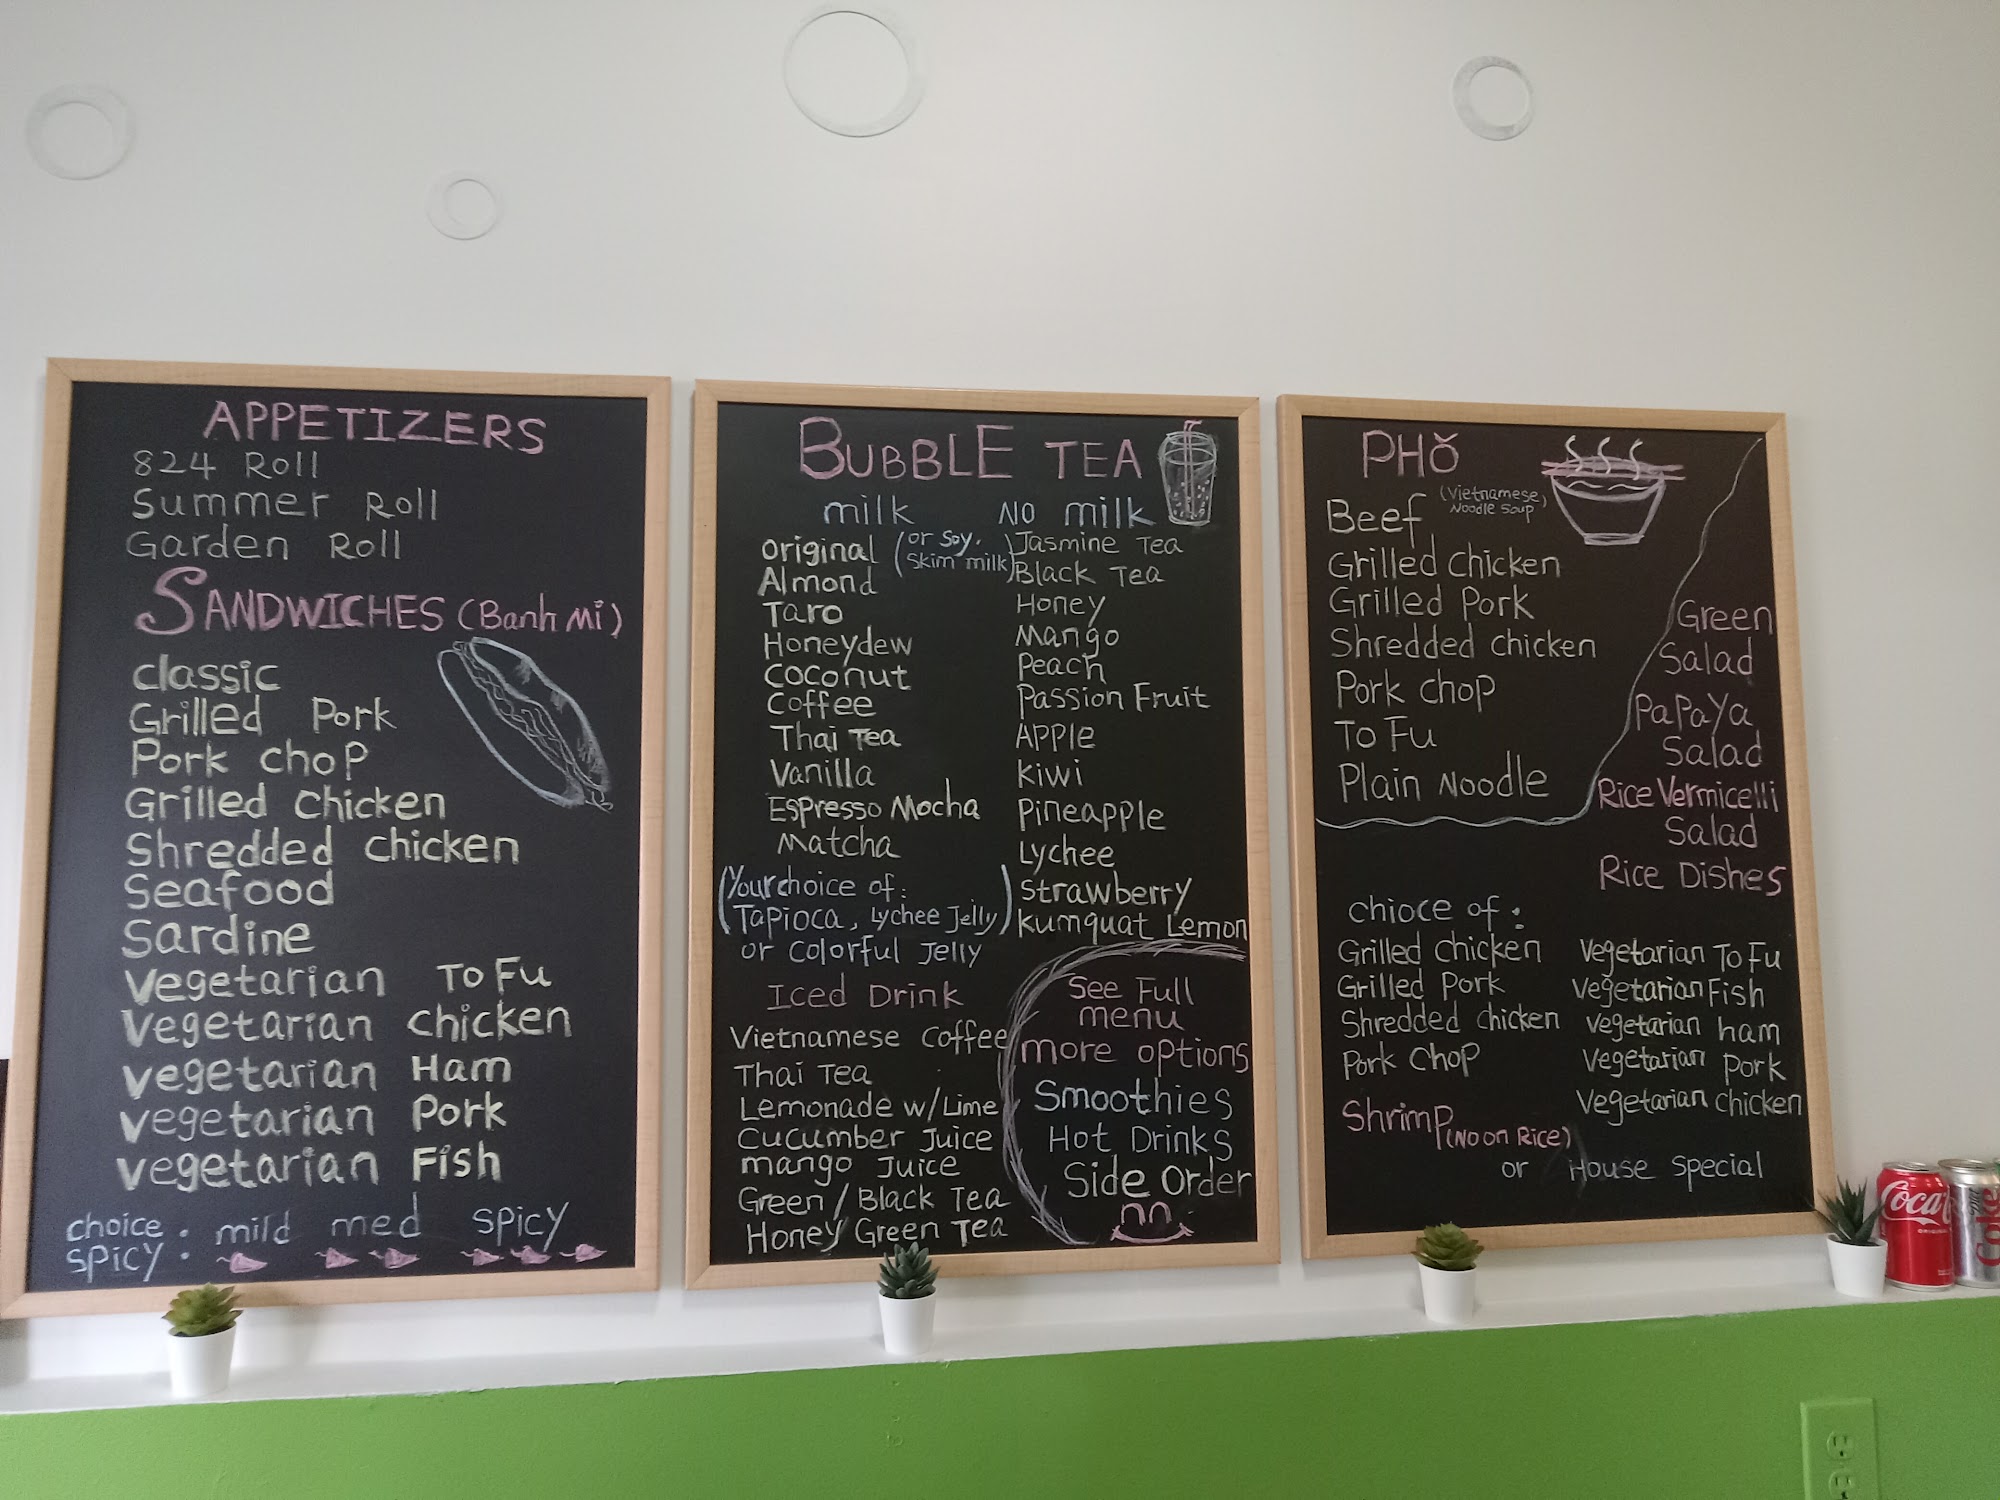 APPETIZERS
824 Roll
Summer Roll
Garden Roll
SANDWICHES (Banh Mi)
classic
Grilled Pork
Pork chop
Grilled chicken
Shredded chicken
Seafood
Sardine
Vegetarian To Fu
Vegetarian chicken
vegetarian Ham
vegetarian Pork
vegetarian Fish
choice : mild med spicy
spicy :
BUBBLE TEA
milk
original (or Soy,
Skim milk)
Almond
Taro
Honeydew
Coconut
Coffee
Thai Tea
Vanilla
Espresso Mocha
Matcha
(Your choice of:
Tapioca, Lychee Jelly)
or Colorful Jelly
NO milk
Jasmine Tea
Black Tea
Honey
Mango
Peach
Passion Fruit
APPLE
Kiwi
Pineapple
Lychee
Strawberry
Kumquat Lemon
Iced Drink
Vietnamese Coffee
Thai Tea
Lemonade w/Lime
Cucumber Juice
mango Juice
Green / Black Tea
Honey Green Tea
See Full
menu
more options
Smoothies
Hot Drinks
Side Order
PHỞ
(Vietnamese
Noodle Soup)
Beef
Grilled chicken
Grilled Pork
Shredded chicken
Pork chop
To Fu
Plain Noodle
Green
Salad
PaPaYa
Salad
Rice Vermicelli
Salad
Rice Dishes
chioce of :
Grilled chicken
Grilled Pork
Shredded chicken
Pork Chop
Shrimp (No on Rice)
Vegetarian To Fu
Vegetarian Fish
Vegetarian ham
Vegetarian Pork
Vegetarian chicken
or House Special
Coca
ORIGINAL
Coke